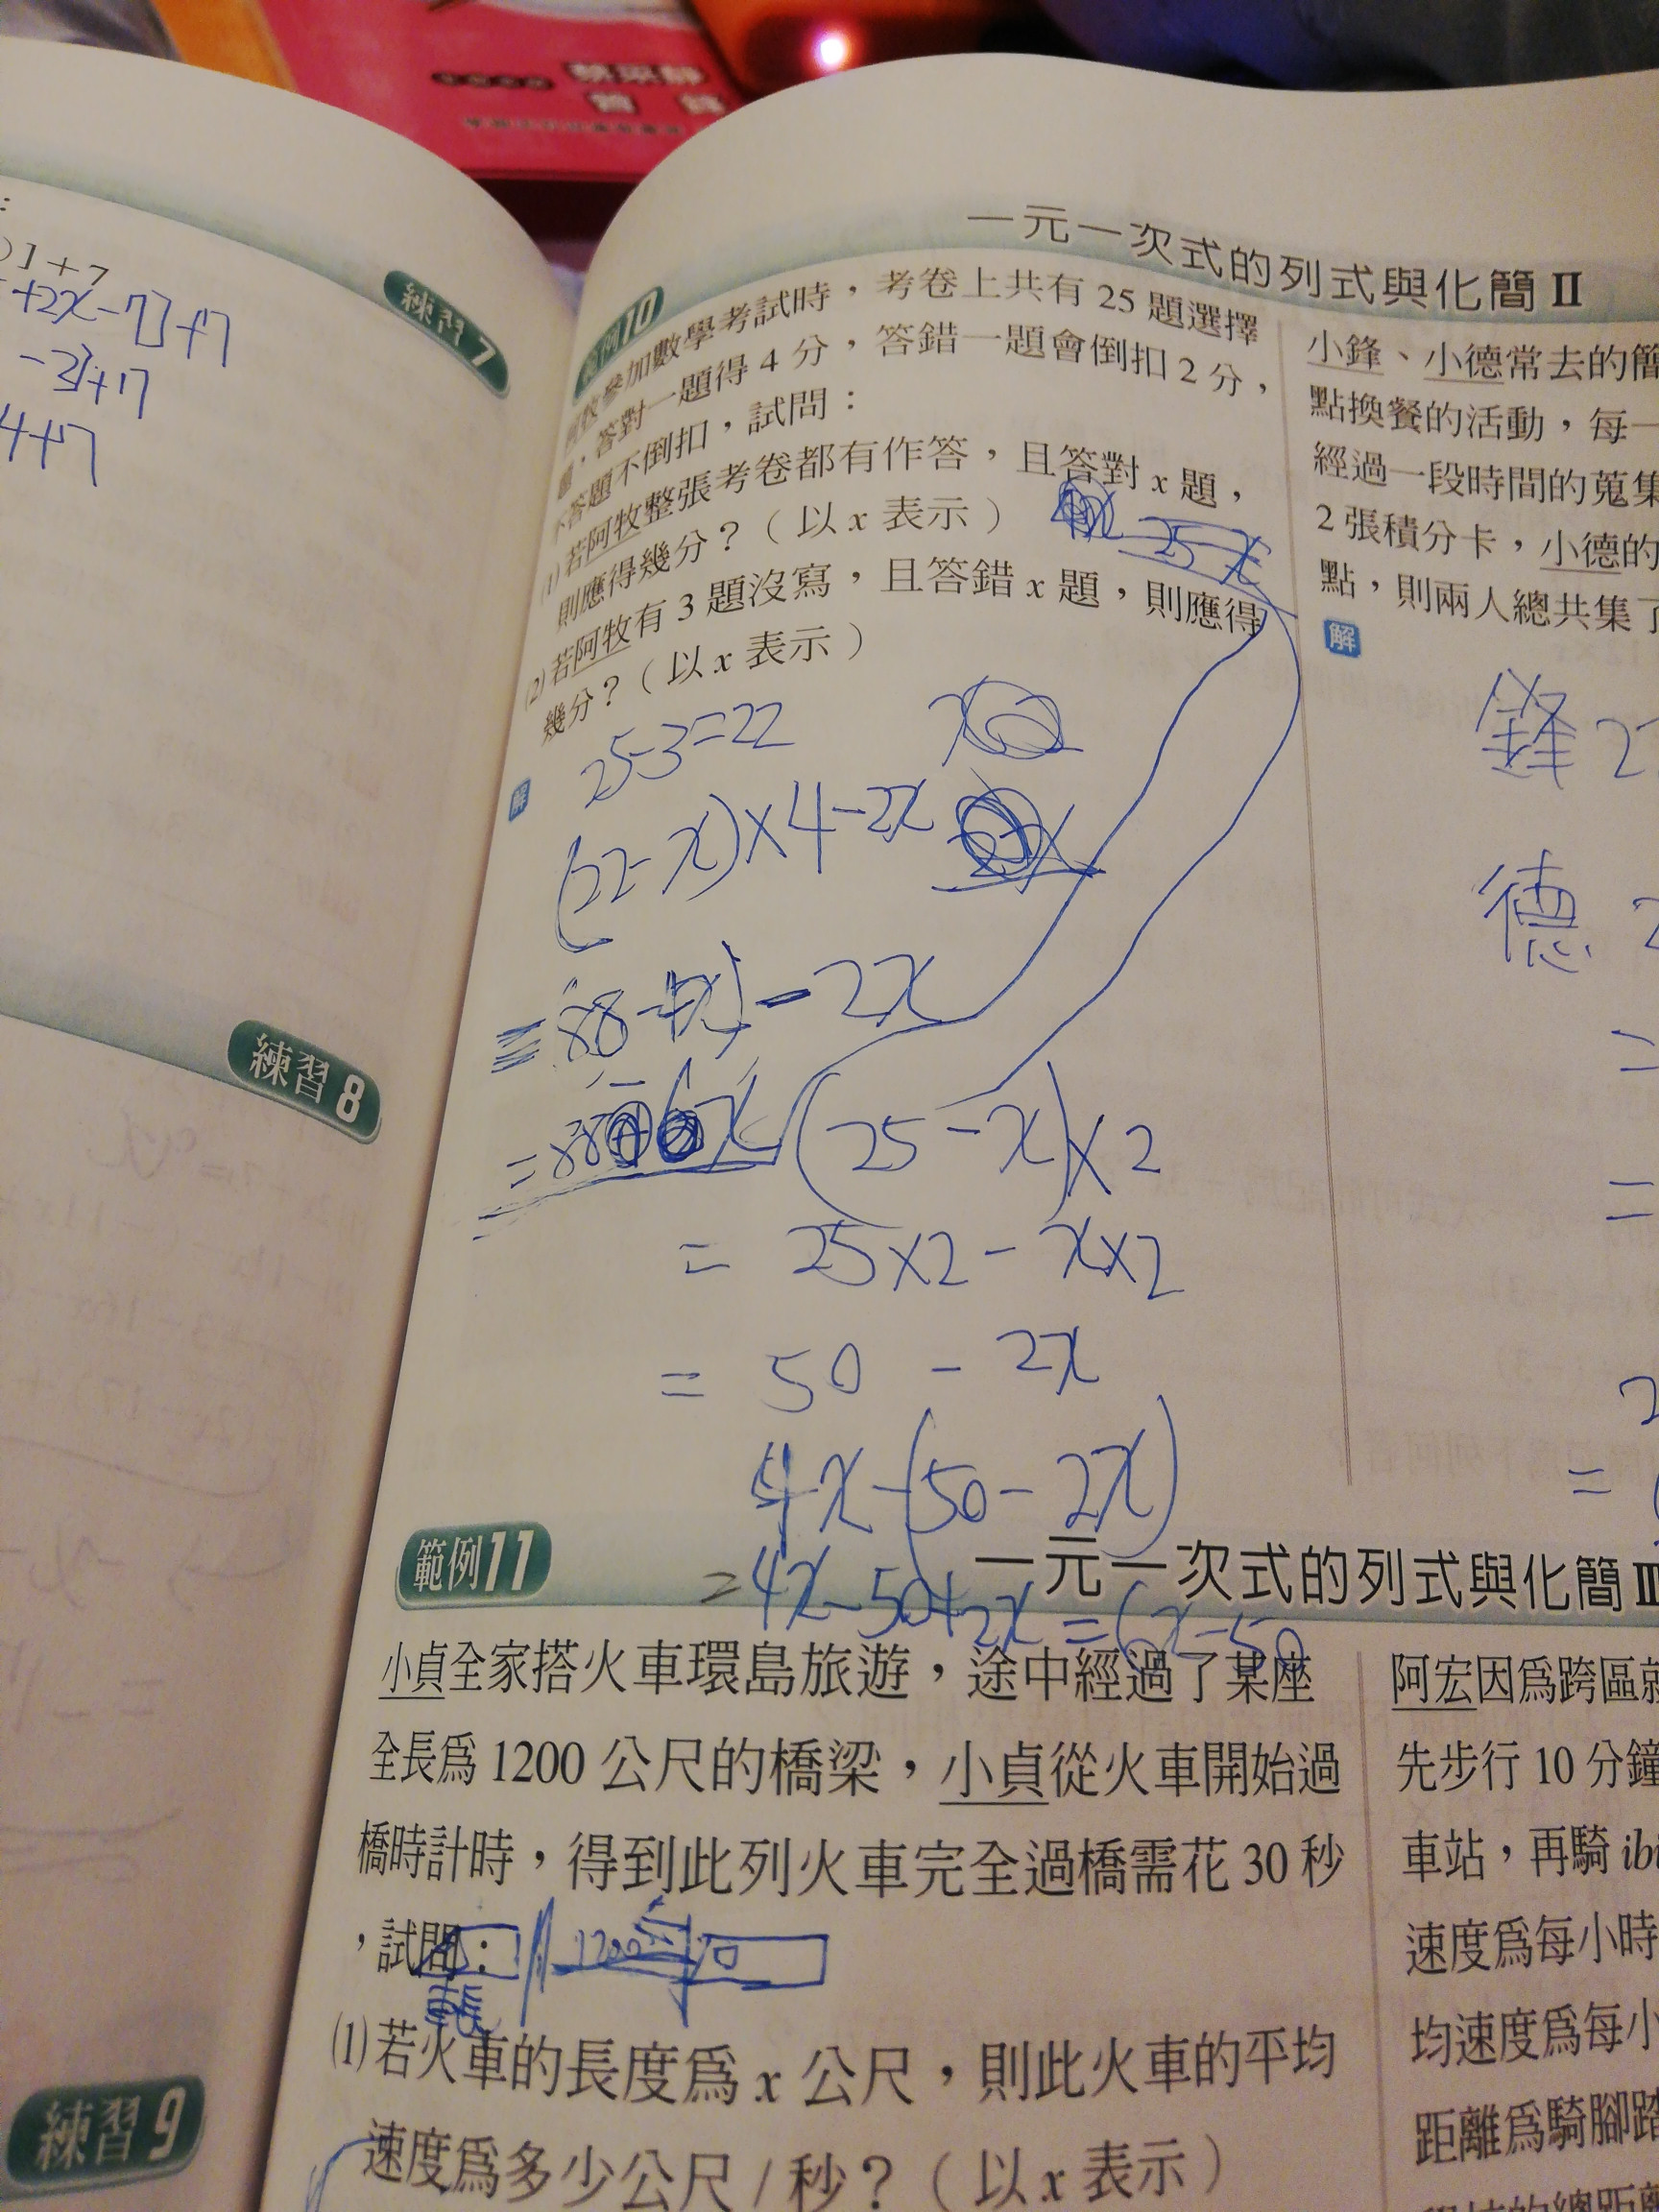 )] + 7
+2x-7]+7
-3]+7
4+7
練習 7
練習 8
練習 9
一元一次式的列式與化簡 II
範例 10
阿牧參加數學考試時，考卷上共有 25 題選擇
題，答對一題得 4 分，答錯一題會倒扣 2 分，
不答題不倒扣，試問：
(1)若阿牧整張考卷都有作答，且答對 x 題，
則應得幾分？（以 x 表示）
25-x
(2)若阿牧有 3 題沒寫，且答錯 x 題，則應得
幾分？（以 x 表示）
解
25-3=22
(22-x)×4-2x
=88-4x)-2x
=88-6x
(25-x)×2
= 25×2-x×2
= 50 - 2x
4x-(50-2x)
=4x-50+2x=6x-50
小鋒、小德常去的簡
點換餐的活動，每一
經過一段時間的蒐集
2 張積分卡，小德的
點，則兩人總共集了
解
鋒 2
德 2
=
=
2
=
範例 11
一元一次式的列式與化簡 III
小貞全家搭火車環島旅遊，途中經過了某座
全長為 1200 公尺的橋梁，小貞從火車開始過
橋時計時，得到此列火車完全過橋需花 30 秒
，試問：
1200
車長
(1)若火車的長度為 x 公尺，則此火車的平均
速度為多少公尺 / 秒？（以 x 表示）
阿宏因為跨區就
先步行 10 分鐘
車站，再騎 ibi
速度為每小時
均速度為每小
距離為騎腳踏